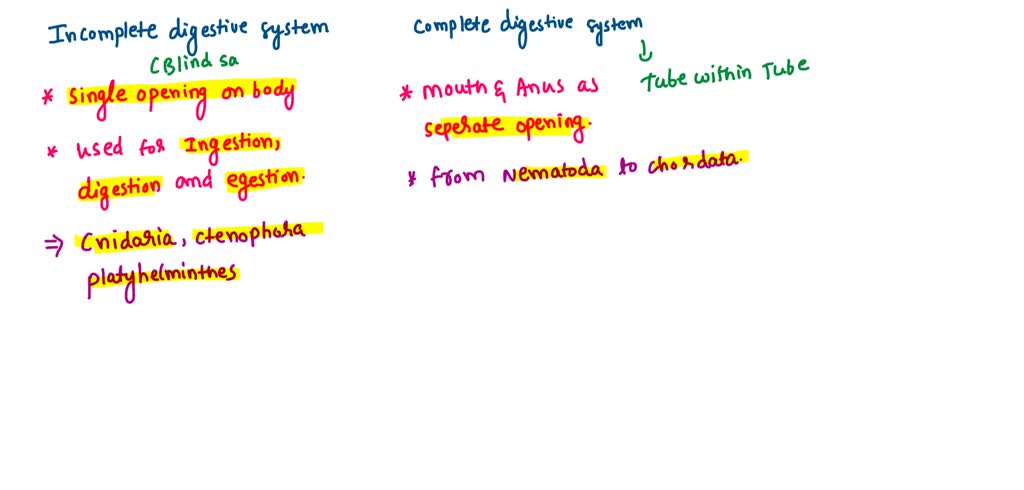 Incomplete digestive system
CBlind sa
* Single opening on body
* used for Ingestion,
digestion and egestion.
⇒ Cnidaria, ctenophara
platyhelminthes
Complete digestive system
↓
Tube within Tube
* mouth & Anus as
seperate opening.
* from Nematoda to chordata.